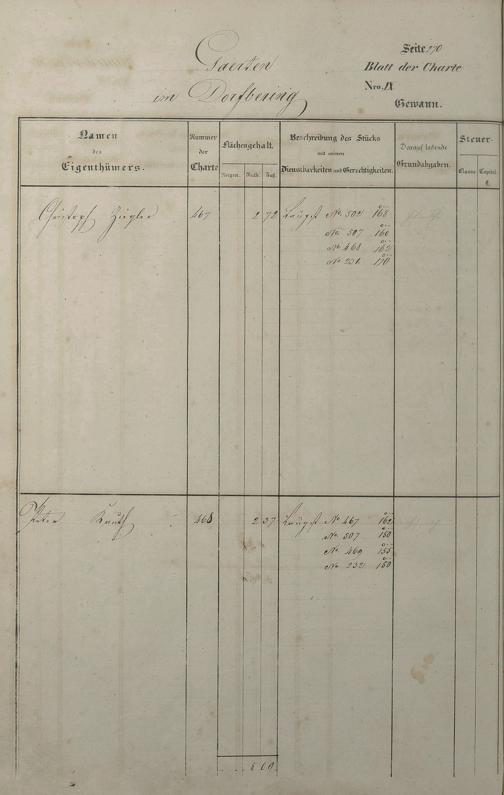 Gaerten
im Dorfbering
Seite 170
Blatt der Charte
Nro. IX
Gewann.
Namen
des
Eigenthümers.
Nummer
der
Charte
Flächengehalt.
Morgen. Ruth. Fuß.
Beschreibung des Stücks
mit seinen
Dienstbarkeiten und Gerechtigkeiten.
Darauf haftende
Grundabgaben.
Steuer-
Classe Capital.
fl.
Christoph Ziegler 467 2 72 No 502 168
No 507 160
No 468 162
No 231 170
Peter Knuth 468 2 37 No 467 162
No 507 150
No 469 155
No 232 150